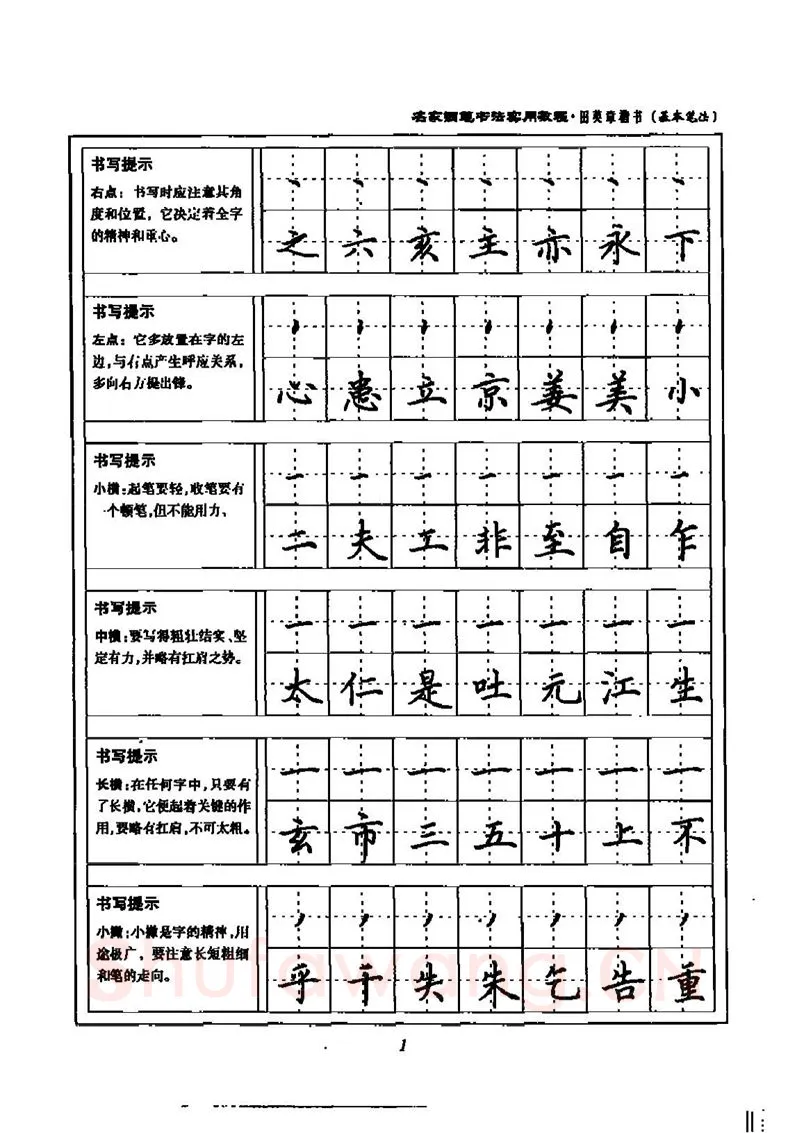 名家钢笔书法实用教程·田英章楷书（基本笔法）
书写提示
右点：书写时应注意其角
度和位置，它决定着全字
的精神和重心。
之 六 亥 主 亦 永 下
书写提示
左点：它多放置在字的左
边，与右点产生呼应关系，
多向右方提出锋。
心 患 立 京 姜 美 小
书写提示
小横：起笔要轻，收笔要有
个顿笔，但不能用力。
二 夫 工 非 至 自 乍
书写提示
中横：要写得粗壮结实、坚
定有力，并略有扛肩之势。
太 仁 是 吐 元 江 生
书写提示
长横：在任何字中，只要有
了长横，它便起着关键的作
用，要略有扛肩，不可太粗。
玄 市 三 五 十 上 不
书写提示
小撇：小撇是字的精神，用
途极广，要注意长短粗细
和笔的走向。
乎 千 失 朱 乞 告 重
Shufawang.CN
1